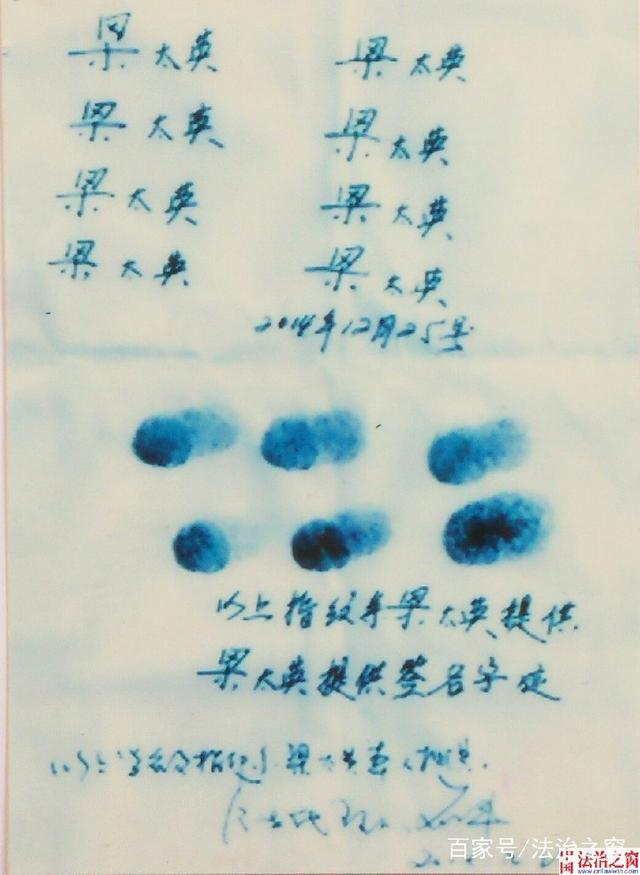 梁太英 梁太英
梁太英 梁太英
梁太英 梁太英
梁太英 梁太英
2014年12月25号
以上指纹 梁太英提供
梁太英提供签名字迹
以上 指纹 梁太英
百家号/法治之窗
中国法治之窗
www.cnlawwin.com